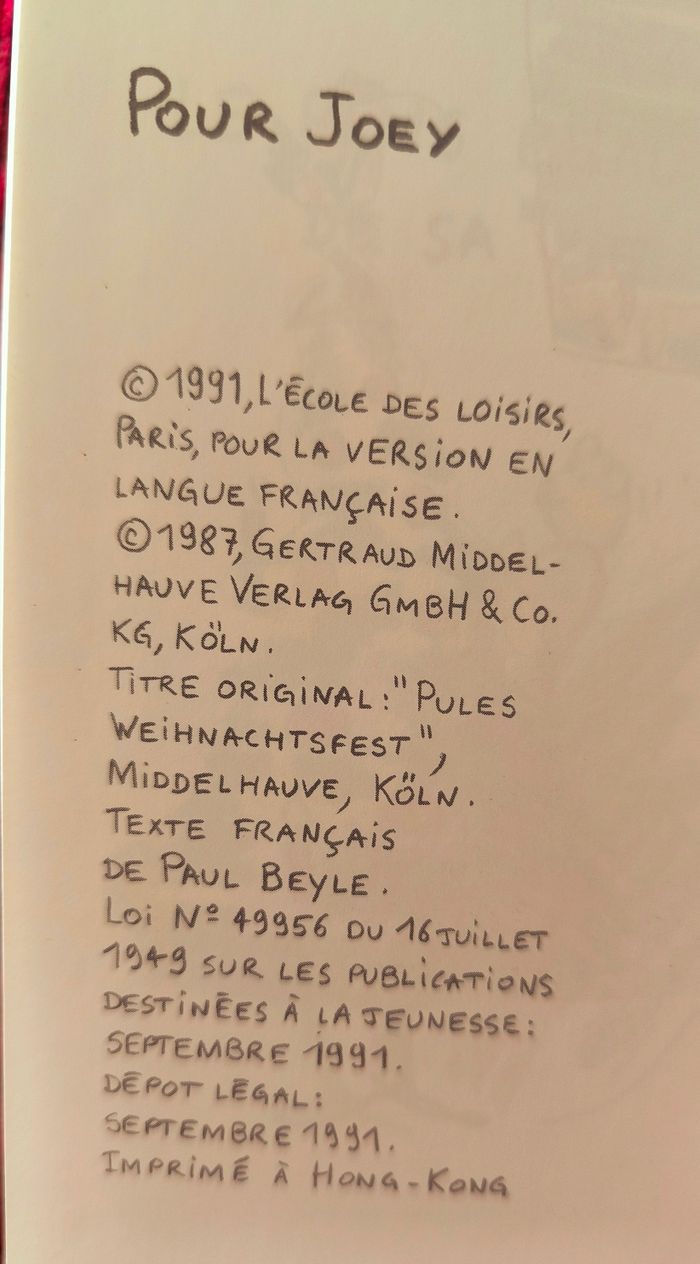 POUR JOEY
© 1991, L'ÉCOLE DES LOISIRS,
PARIS, POUR LA VERSION EN
LANGUE FRANÇAISE.
© 1987, GERTRAUD MIDDEL-
HAUVE VERLAG GMBH & Co.
KG, KÖLN.
TITRE ORIGINAL : "PULES
WEIHNACHTSFEST",
MIDDELHAUVE, KÖLN.
TEXTE FRANÇAIS
DE PAUL BEYLE.
LOI Nº 49956 DU 16 JUILLET
1949 SUR LES PUBLICATIONS
DESTINÉES À LA JEUNESSE :
SEPTEMBRE 1991.
DÉPOT LÉGAL :
SEPTEMBRE 1991.
IMPRIMÉ À HONG-KONG